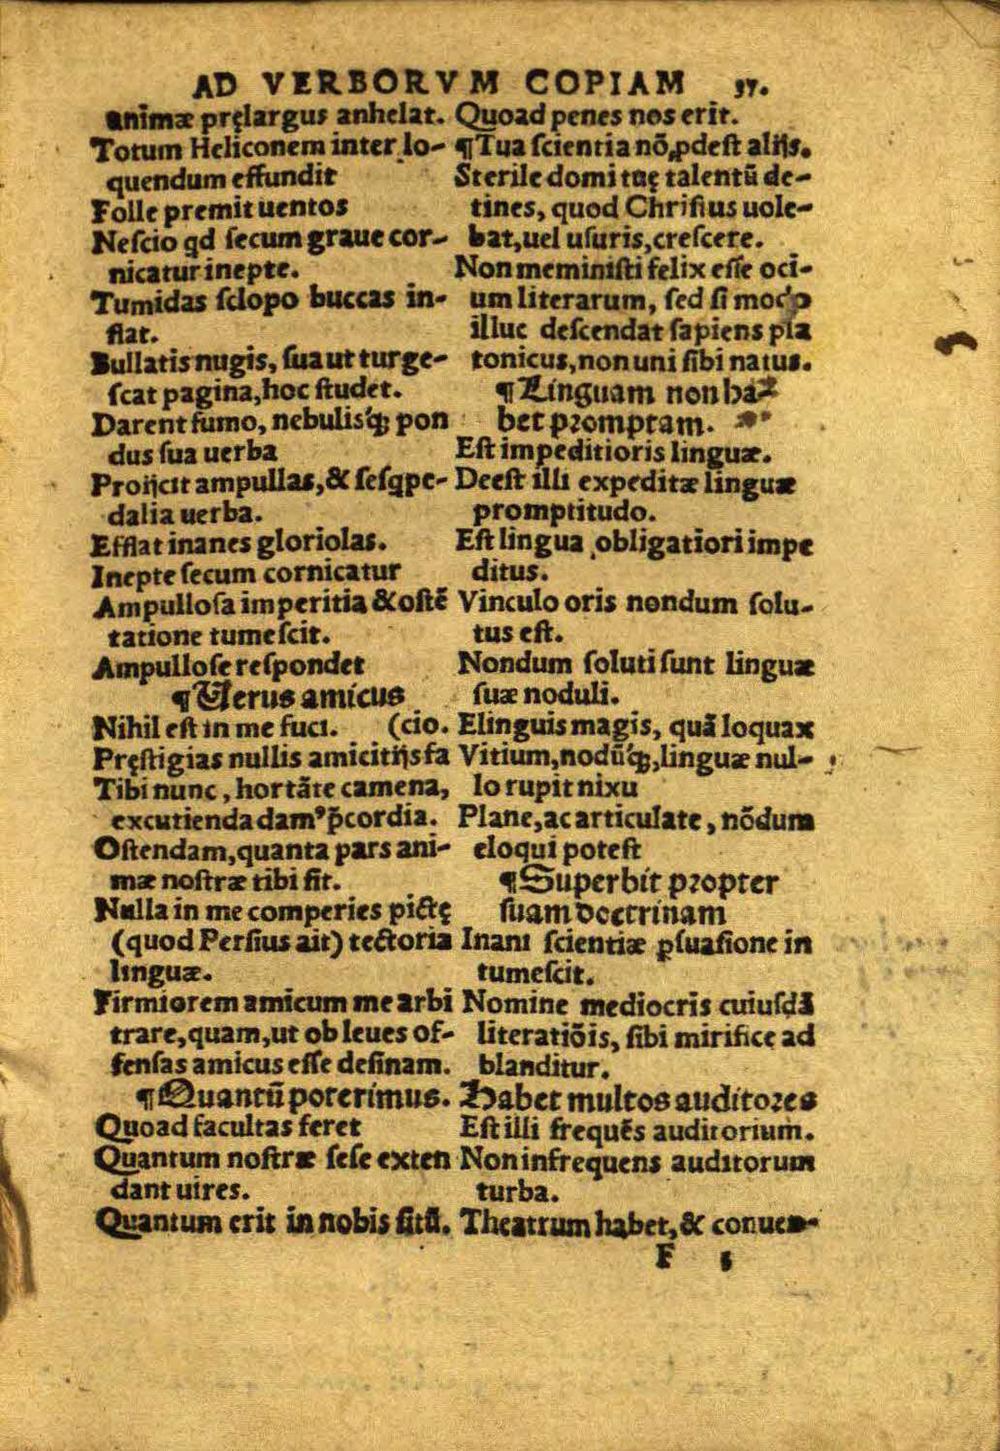 AD VERBORVM COPIAM 37.
animæ pręlargus anhelat.
Totum Heliconem inter lo-
quendum effundit
Folle premit uentos
Nescio qd secum graue cor-
nicatur inepte.
Tumidas sclopo buccas in-
flat.
Bullatis nugis, sua ut turge-
scat pagina, hoc studet.
Darent fumo, nebulisq́; pon
dus sua uerba
Proijcit ampullas, & sesqpe-
dalia uerba.
Efflat inanes gloriolas.
Inepte secum cornicatur
Ampullosa imperitia & ostẽ
tatione tumescit.
Ampullose respondet
¶ Verus amicus
Nihil est in me fuci. (cio.
Pręstigias nullis amicitijs fa
Tibi nunc, hortãte camena,
excutienda damꝰ p̃cordia.
Ostendam, quanta pars ani-
mæ nostræ tibi sit.
Nulla in me comperies pictę
(quod Persius ait) tectoria
linguæ.
Firmiorem amicum me arbi
trare, quam, ut ob leues of-
fensas amicus esse desinam.
¶ Quantũ poterimus.
Quoad facultas feret
Quantum nostræ sese exten
dant uires.
Quantum erit in nobis sitũ.
Quoad penes nos erit.
¶ Tua scientia nõ ꝓdest alijs.
Sterile domi tuę talentũ de-
tines, quod Christus uole-
bat, uel usuris, crescere.
Non meministi felix esse oci-
um literarum, sed si modo
illuc descendat sapiens pla
tonicus, non uni sibi natus.
¶ Linguam non ha-
bet promptam.
Est impeditioris linguæ.
Deest illi expeditæ linguæ
promptitudo.
Est lingua obligatiori impe
ditus.
Vinculo oris nondum solu-
tus est.
Nondum soluti sunt linguæ
suæ noduli.
Elinguis magis, quã loquax
Vitium, nodũq́;, linguæ nul-
lo rupit nixu
Plane, ac articulate, nõdum
eloqui potest
¶ Superbit propter
suam doctrinam
Inani scientiæ ꝑsuasione in
tumescit.
Nomine mediocris cuiusdã
literatiõis, sibi mirifice ad
blanditur.
Habet multos auditores
Est illi frequẽs auditorium.
Non infrequens auditorum
turba.
Theatrum habet, & conuen-
F 5